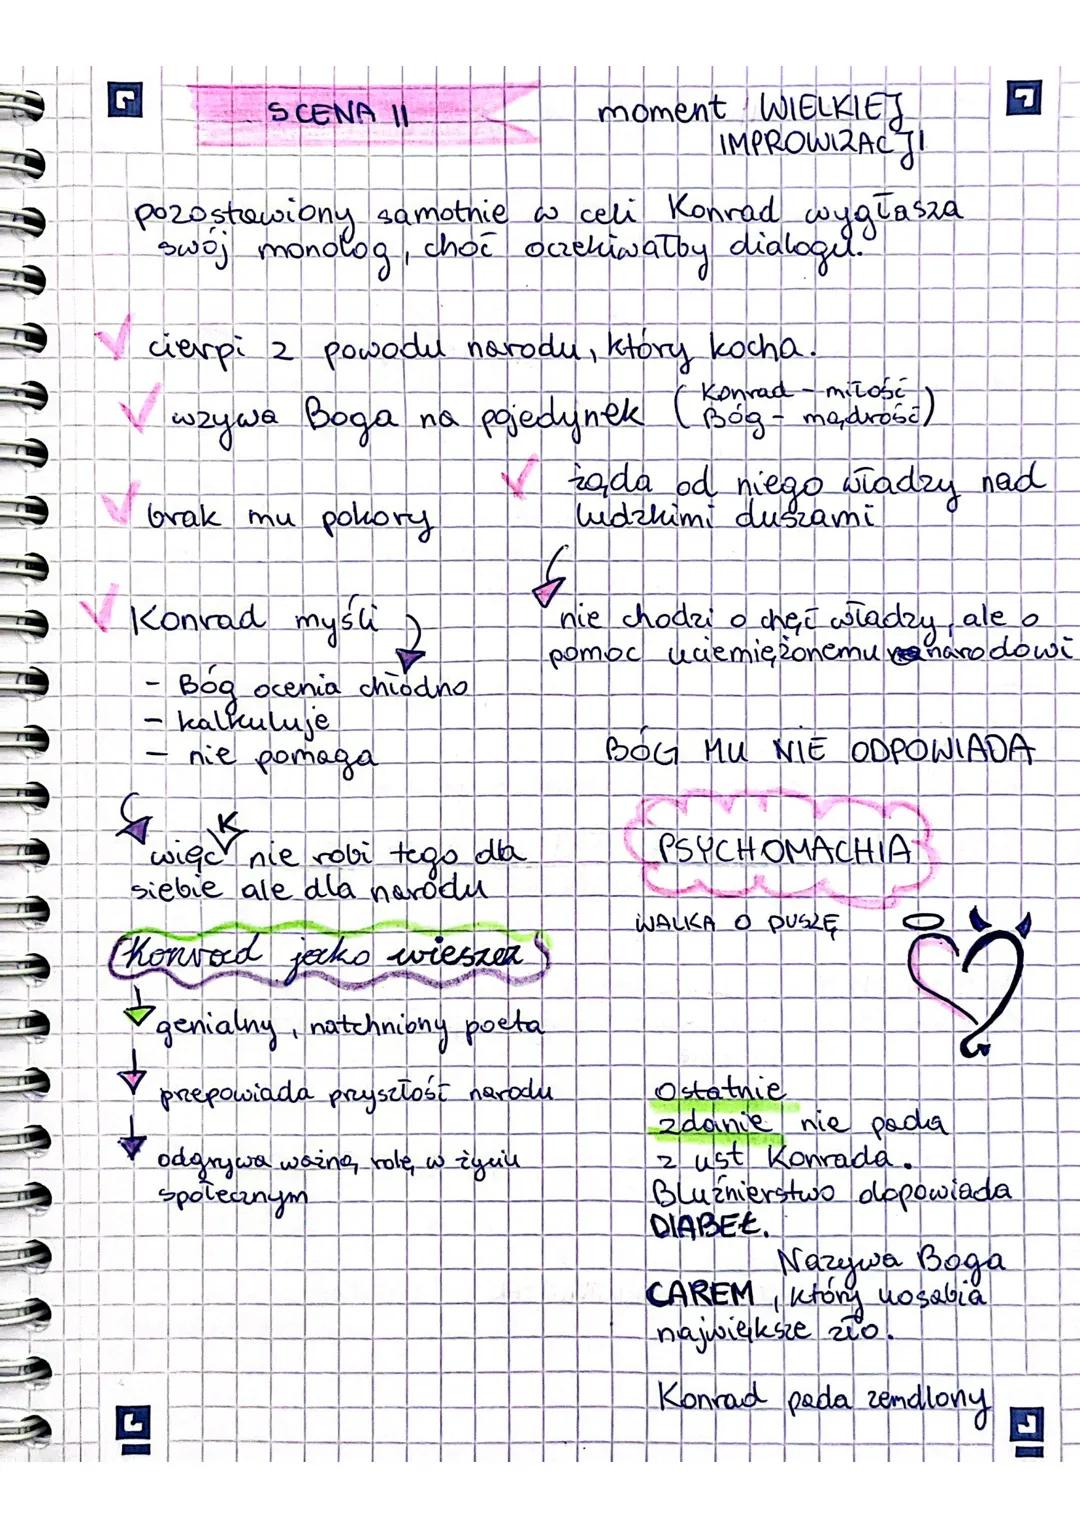 SCENA II
moment WIELKIEJ
IMPROWIZACJI
pozostawiony samotnie w celi Konrad wygłasza
swój monolog, choć oczekiwałby dialogu.
cierpi z powodu narodu, który kocha.
wzywa Boga na pojedynek (Konrad - miłość
Bóg - mądrość)
brak mu pokory
żąda od niego władzy nad
ludzkimi duszami
nie chodzi o chęć władzy, ale o
pomoc uciemiężonemu narodowi
Konrad myśli
- Bóg ocenia chłodno
- kalkuluje
- nie pomaga
BÓG MU NIE ODPOWIADA
K
więc nie robi tego dla
siebie ale dla narodu
PSYCHOMACHIA
WALKA O DUSZĘ
Konrad jako wieszcz
genialny, natchniony poeta
przepowiada przyszłość narodu
odgrywa ważną rolę w życiu
społecznym
Ostatnie
zdanie nie pada
z ust Konrada.
Bluźnierstwo dopowiada
DIABEŁ.
Nazywa Boga
CAREM, który uosabia
największe zło.
Konrad pada zemdlony